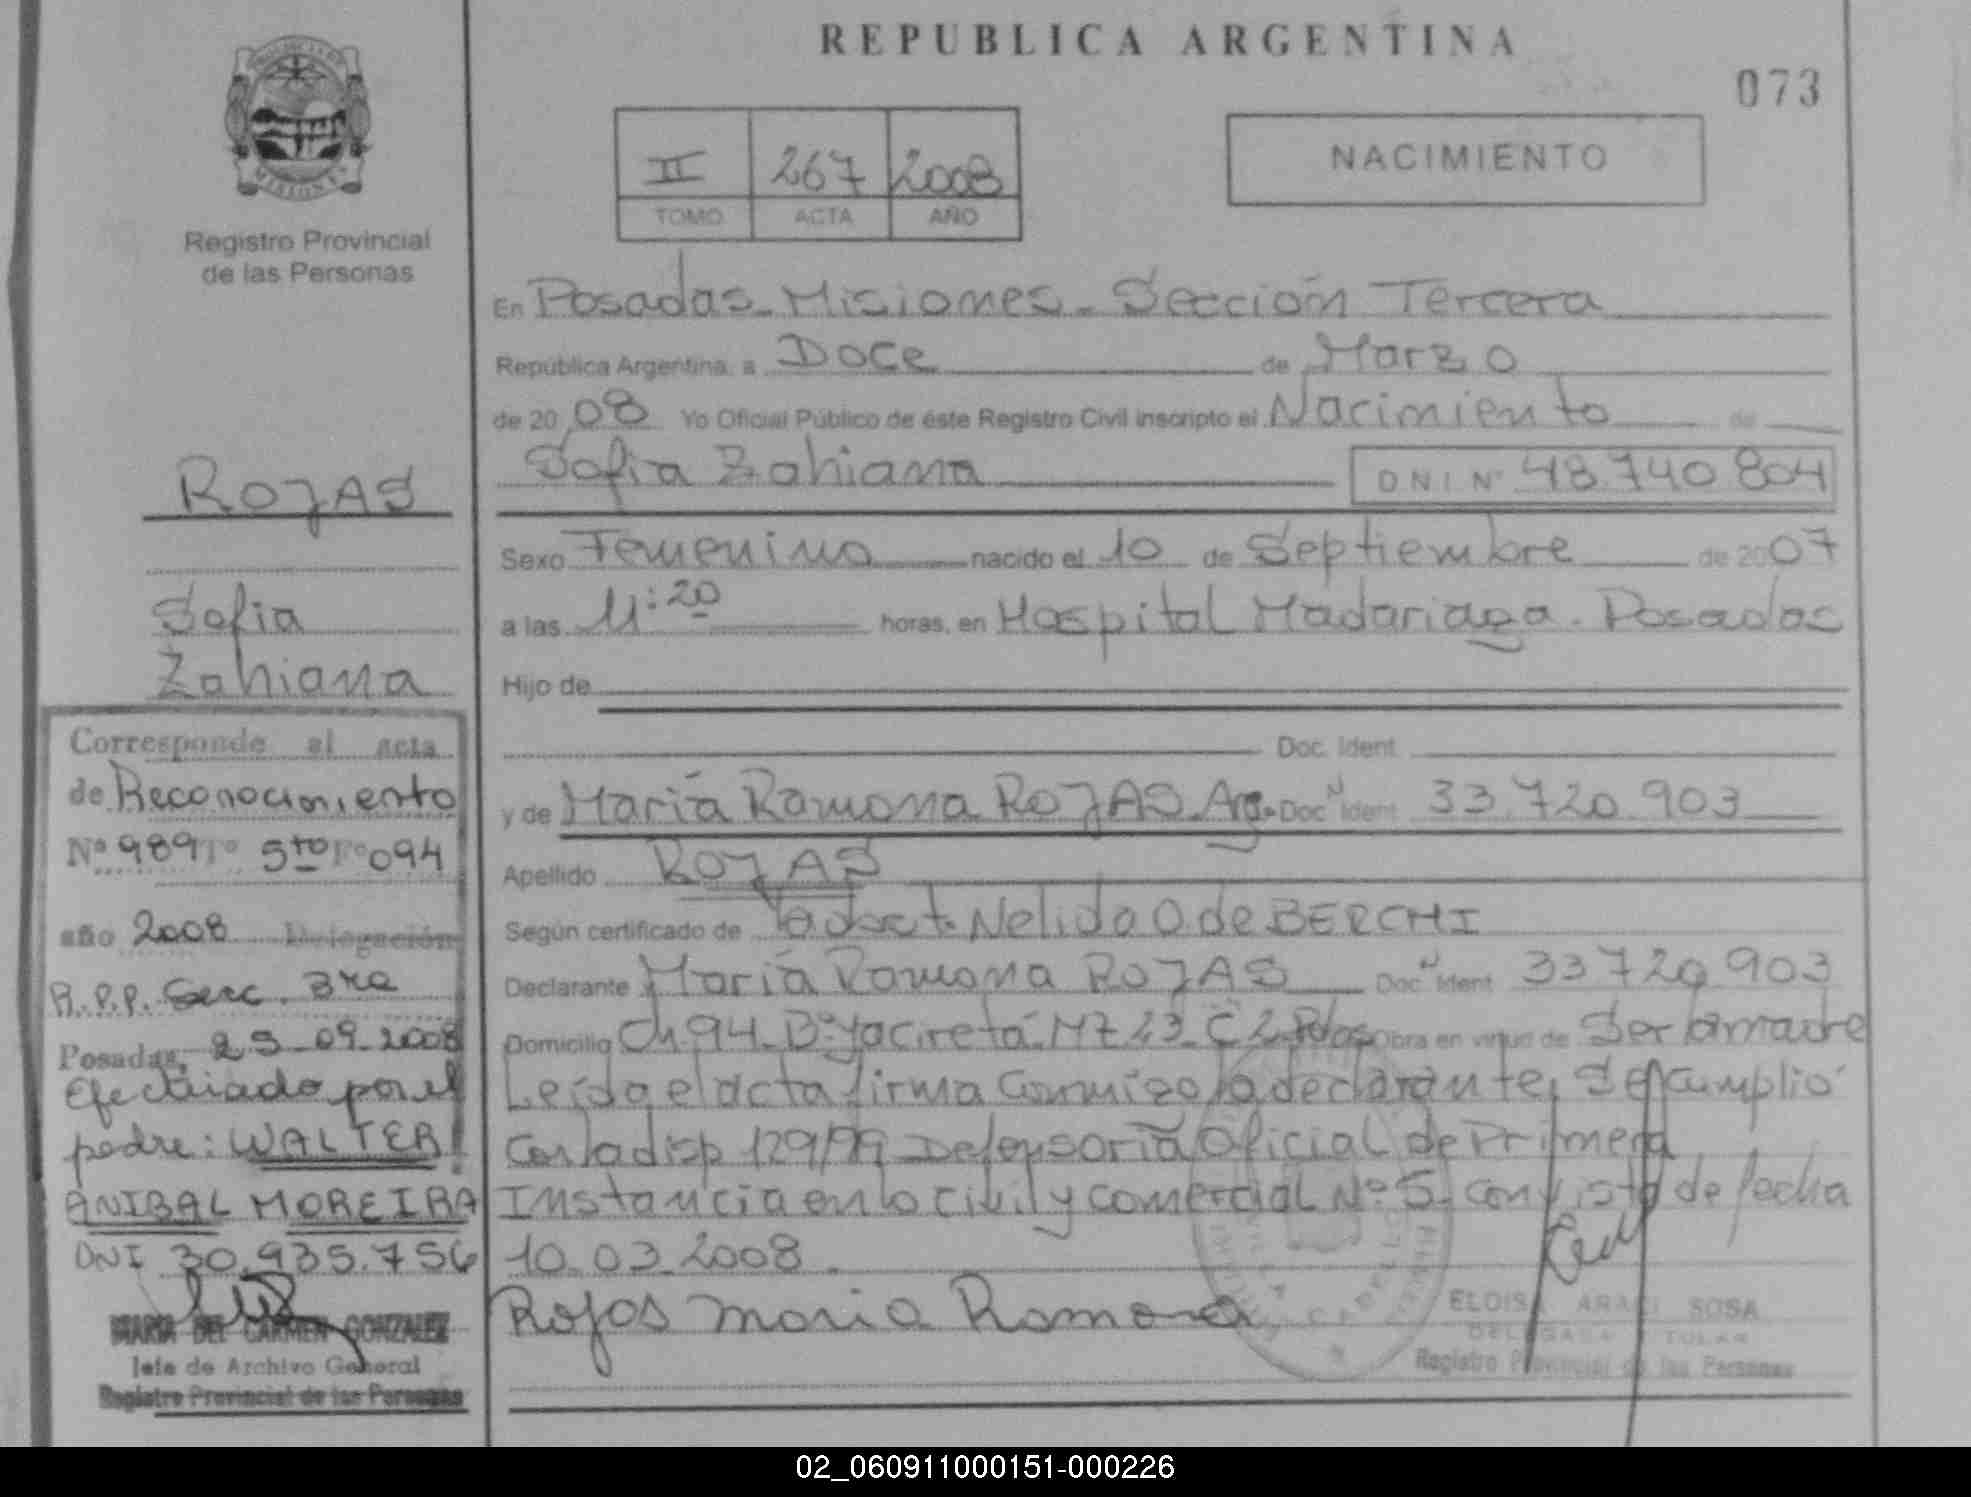 REPUBLICA ARGENTINA
073
II 267 2008
TOMO ACTA AÑO
NACIMIENTO
MISIONES
Registro Provincial
de las Personas
En Posadas - Misiones - Sección Tercera
República Argentina, a Doce de Marzo
de 2008 Yo Oficial Público de éste Registro Civil inscripto el Nacimiento de
Sofia Zahiana DNI Nº 48.740 804
Sexo Femenino nacido el 10 de Septiembre de 2007
a las 11:20 horas, en Hospital Madariaga. Posadas
Hijo de
Doc. Ident.
y de María Ramona ROJAS. Arg. Doc. N Ident. 33.720.903
Apellido ROJAS
Según certificado de obst. Nelida O. de BERCHI
Declarante María Ramona ROJAS Doc. N Ident. 33 720 903
Domicilio Ch 94. Bº Yacireta. MZ 23. C 2 Pdas Obra en virtud de Ser la madre
Leída el acta firma conmigo la declarante, Se cumplió
Con la disp 129/99 Defensoria Oficial de Primera
Instancia en lo civil y comercial Nº 5 con vista de fecha
10.03.2008.
Rojas Maria Ramona
ELOISA ARACI SOSA
DELEGADA TITULAR
Registro Provincial de las Personas
ROJAS
Sofia
Zahiana
Corresponde al acta
de Reconocimiento
Nº 989 Tº 5to Fº 094
año 2008 Delegación
R.P.P. Secc. 3ra
Posadas, 25-09-2008
Efectuado por el
padre: WALTER
ANIBAL MOREIRA
DNI 30.935.756
MARIA DEL CARMEN GONZALEZ
Jefe de Archivo General
Registro Provincial de las Personas
02_060911000151-000226